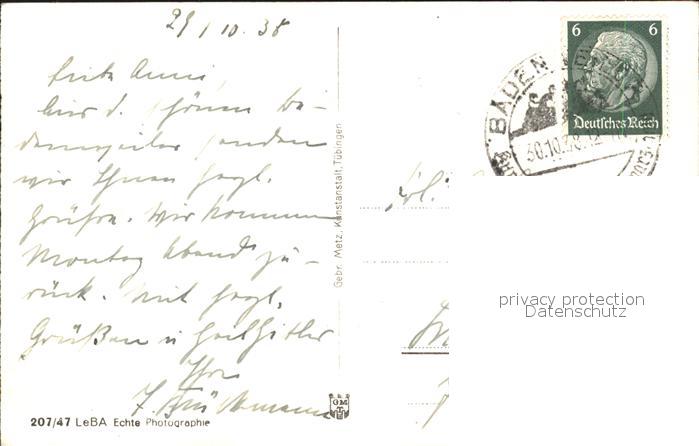 29/10.38
Liebe Anni,
Aus d. schönen Ba-
denweiler senden
wir Ihnen herzl.
Grüße. Wir kommen
Montag Abend zu-
rück. Mit herzl.
Grüßen u Heil Hitler
Ihre
207/47 LeBA Echte Photographie
Gebr. Metz, Kunstanstalt, Tübingen
GM
T
6 6
Deutsches Reich
BADENWEILER
30.10.38
Frl.
privacy protection
Datenschutz